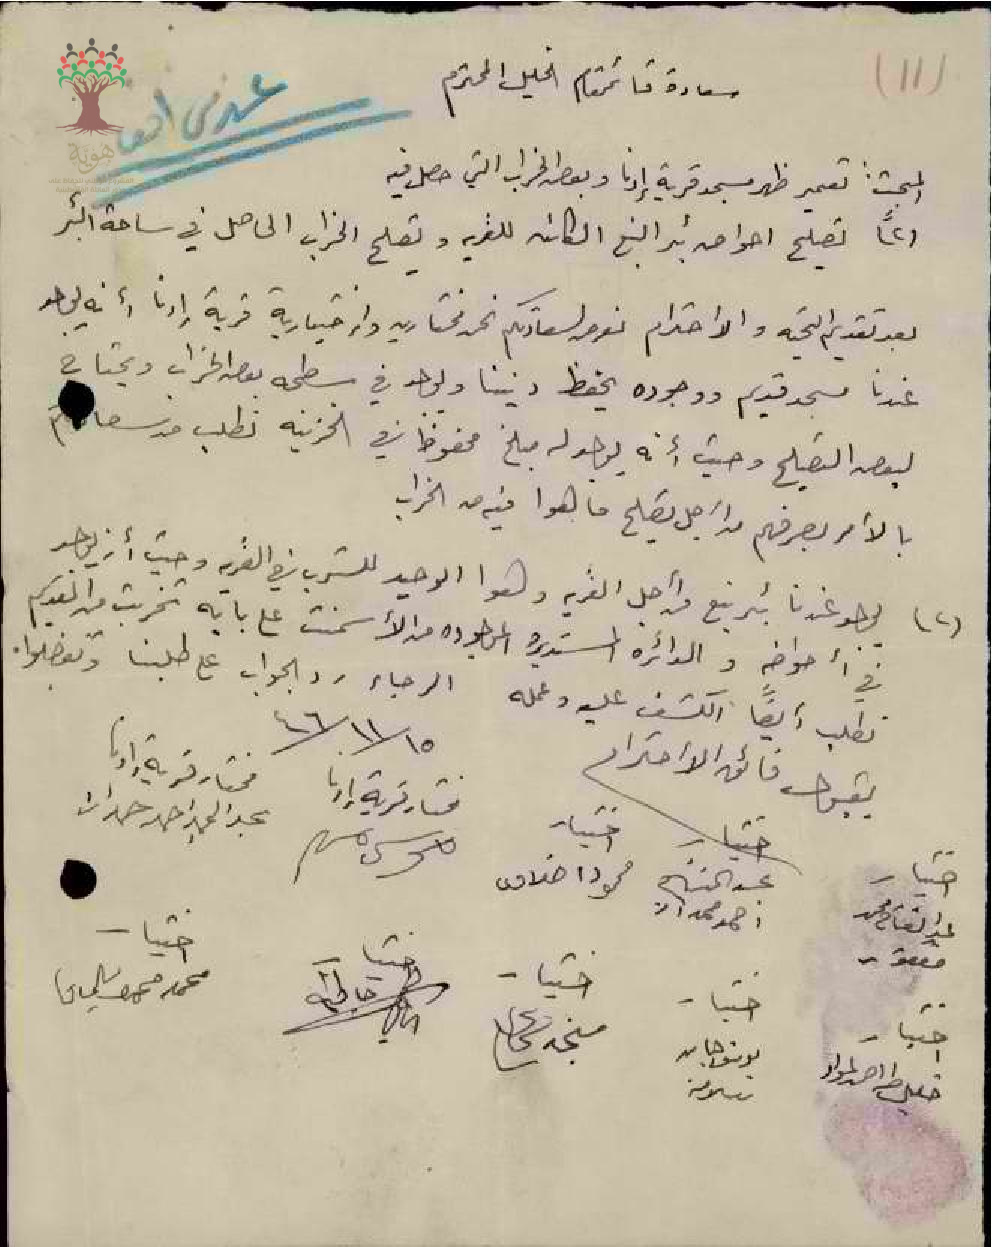 (١١)
سعادة قائمقام الخليل المحترم
المبحث: تعمير ظهر مسجد قرية إذنا وبعض الخراب التي حصل فيه
(٢) تصليح احواض بئر النبع الكائنه للقريه وتصليح الخراب الحاصل في ساحة البئر
بعد تقديم التحيه والااحترام نعرض لسعادتكم نحن مختارين واختيارية قرية إذنا أنه يوجد
عندنا مسجد قديم ووجوده يحفظ ديننا ويوجد في سطحه بعض الخراب ويحتاج
لبعض التصليح وحيث أنه يوجد له مبلغ محفوظ في الخزينه نطلب من سعادتكم
بالأمر بصرفهم من أجل تصليح ما هوا فيه من الخراب
(٢) يوجد عندنا بئر نبع من أجل القريه وهوا الوحيد للشرب في القريه وحيث أن يوجد
في أحواضه والدائره المستديره الموجوده من الأسمنت على بابه تخربت من القديم
نطلب أيضًا الكشف عليه وعمله الرجاء رد الجواب على طلبنا وتفضلوا
بقبول فائق الااحترام
١٥/١١/٤٦
مختار قرية إذنا
مختار قرية إذنا
عبد الحميد احمد حمدان
اختيار
اختيار
محمود
اختيار
عبد الفتاح محمد
اختيار
اختيار
اختيار
محمد
اختيار
اختيار
يونس
سلامة
اختيار
خليل
هوية